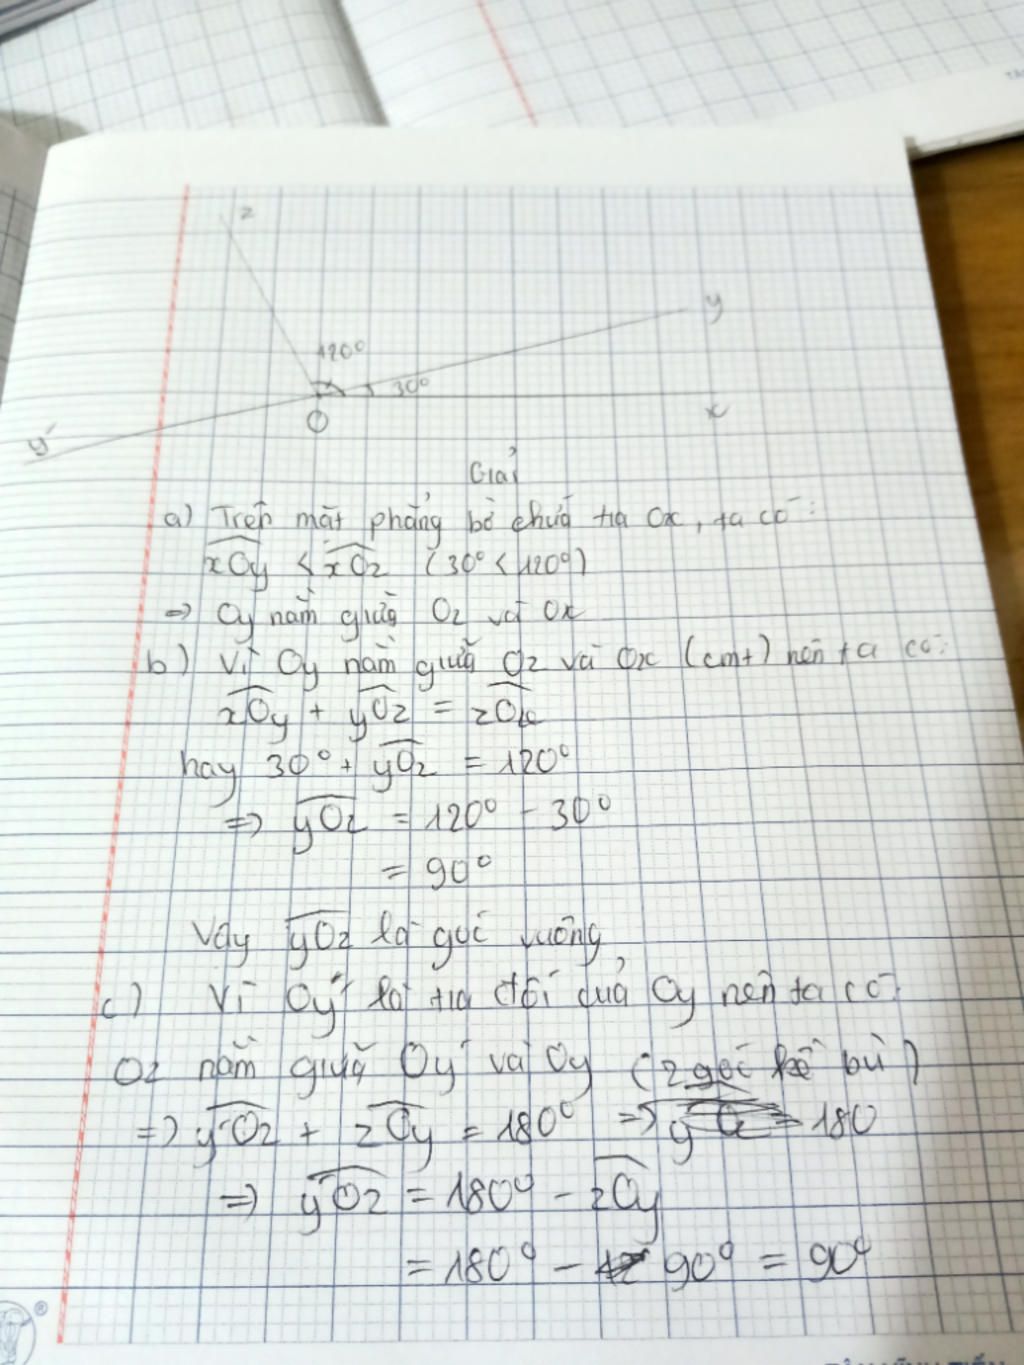 z
y
120°
30°
O
x
y'
Giải
a) Trên mặt phẳng bờ chứa tia Ox, ta có:
xOy < xOz (30° < 120°)
=> Oy nằm giữa Oz và Ox
b) Vì Oy nằm giữa Oz và Ox (cmt) nên ta có:
xOy + yOz = zOx
hay 30° + yOz = 120°
=> yOz = 120° - 30°
= 90°
Vậy yOz là góc vuông
c) Vì Oy' là tia đối của Oy nên ta có:
Oz nằm giữa Oy' và Oy (2 góc kề bù)
=> y'Oz + zOy = 180° => 180
=> y'Oz = 180° - zOy
= 180° - 90° = 90°
®